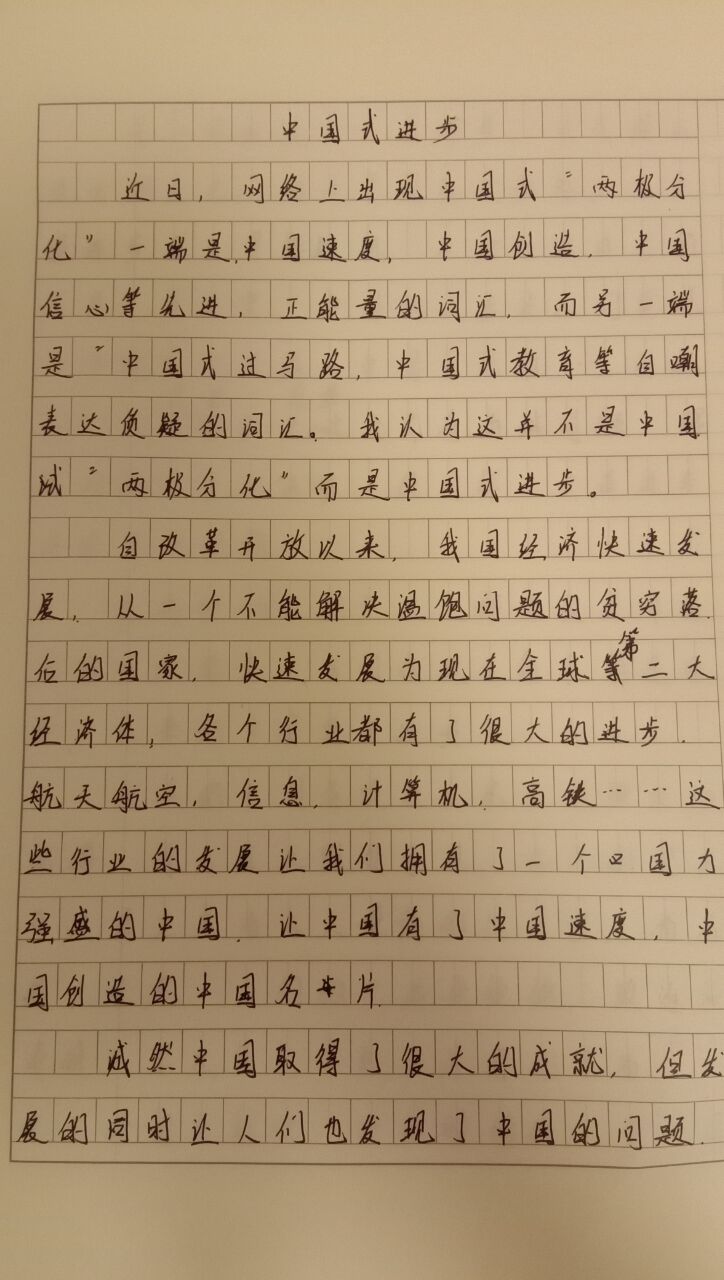 中国式进步
近日，网络上出现中国式“两极分
化”一端是中国速度，中国创造，中国
信心等先进，正能量的词汇，而另一端
是“中国式过马路，中国式教育等自嘲
表达质疑的词汇。我认为这并不是中国
式“两极分化”而是中国式进步。
自改革开放以来，我国经济快速发
展，从一个不能解决温饱问题的贫穷落
后的国家，快速发展为现在全球第二大
经济体，各个行业都有了很大的进步，
航天航空，信息，计算机，高铁……这
些行业的发展让我们拥有了一个国力
强盛的中国，让中国有了中国速度，中
国创造的中国名片
诚然中国取得了很大的成就，但发
展的同时让人们也发现了中国的问题，